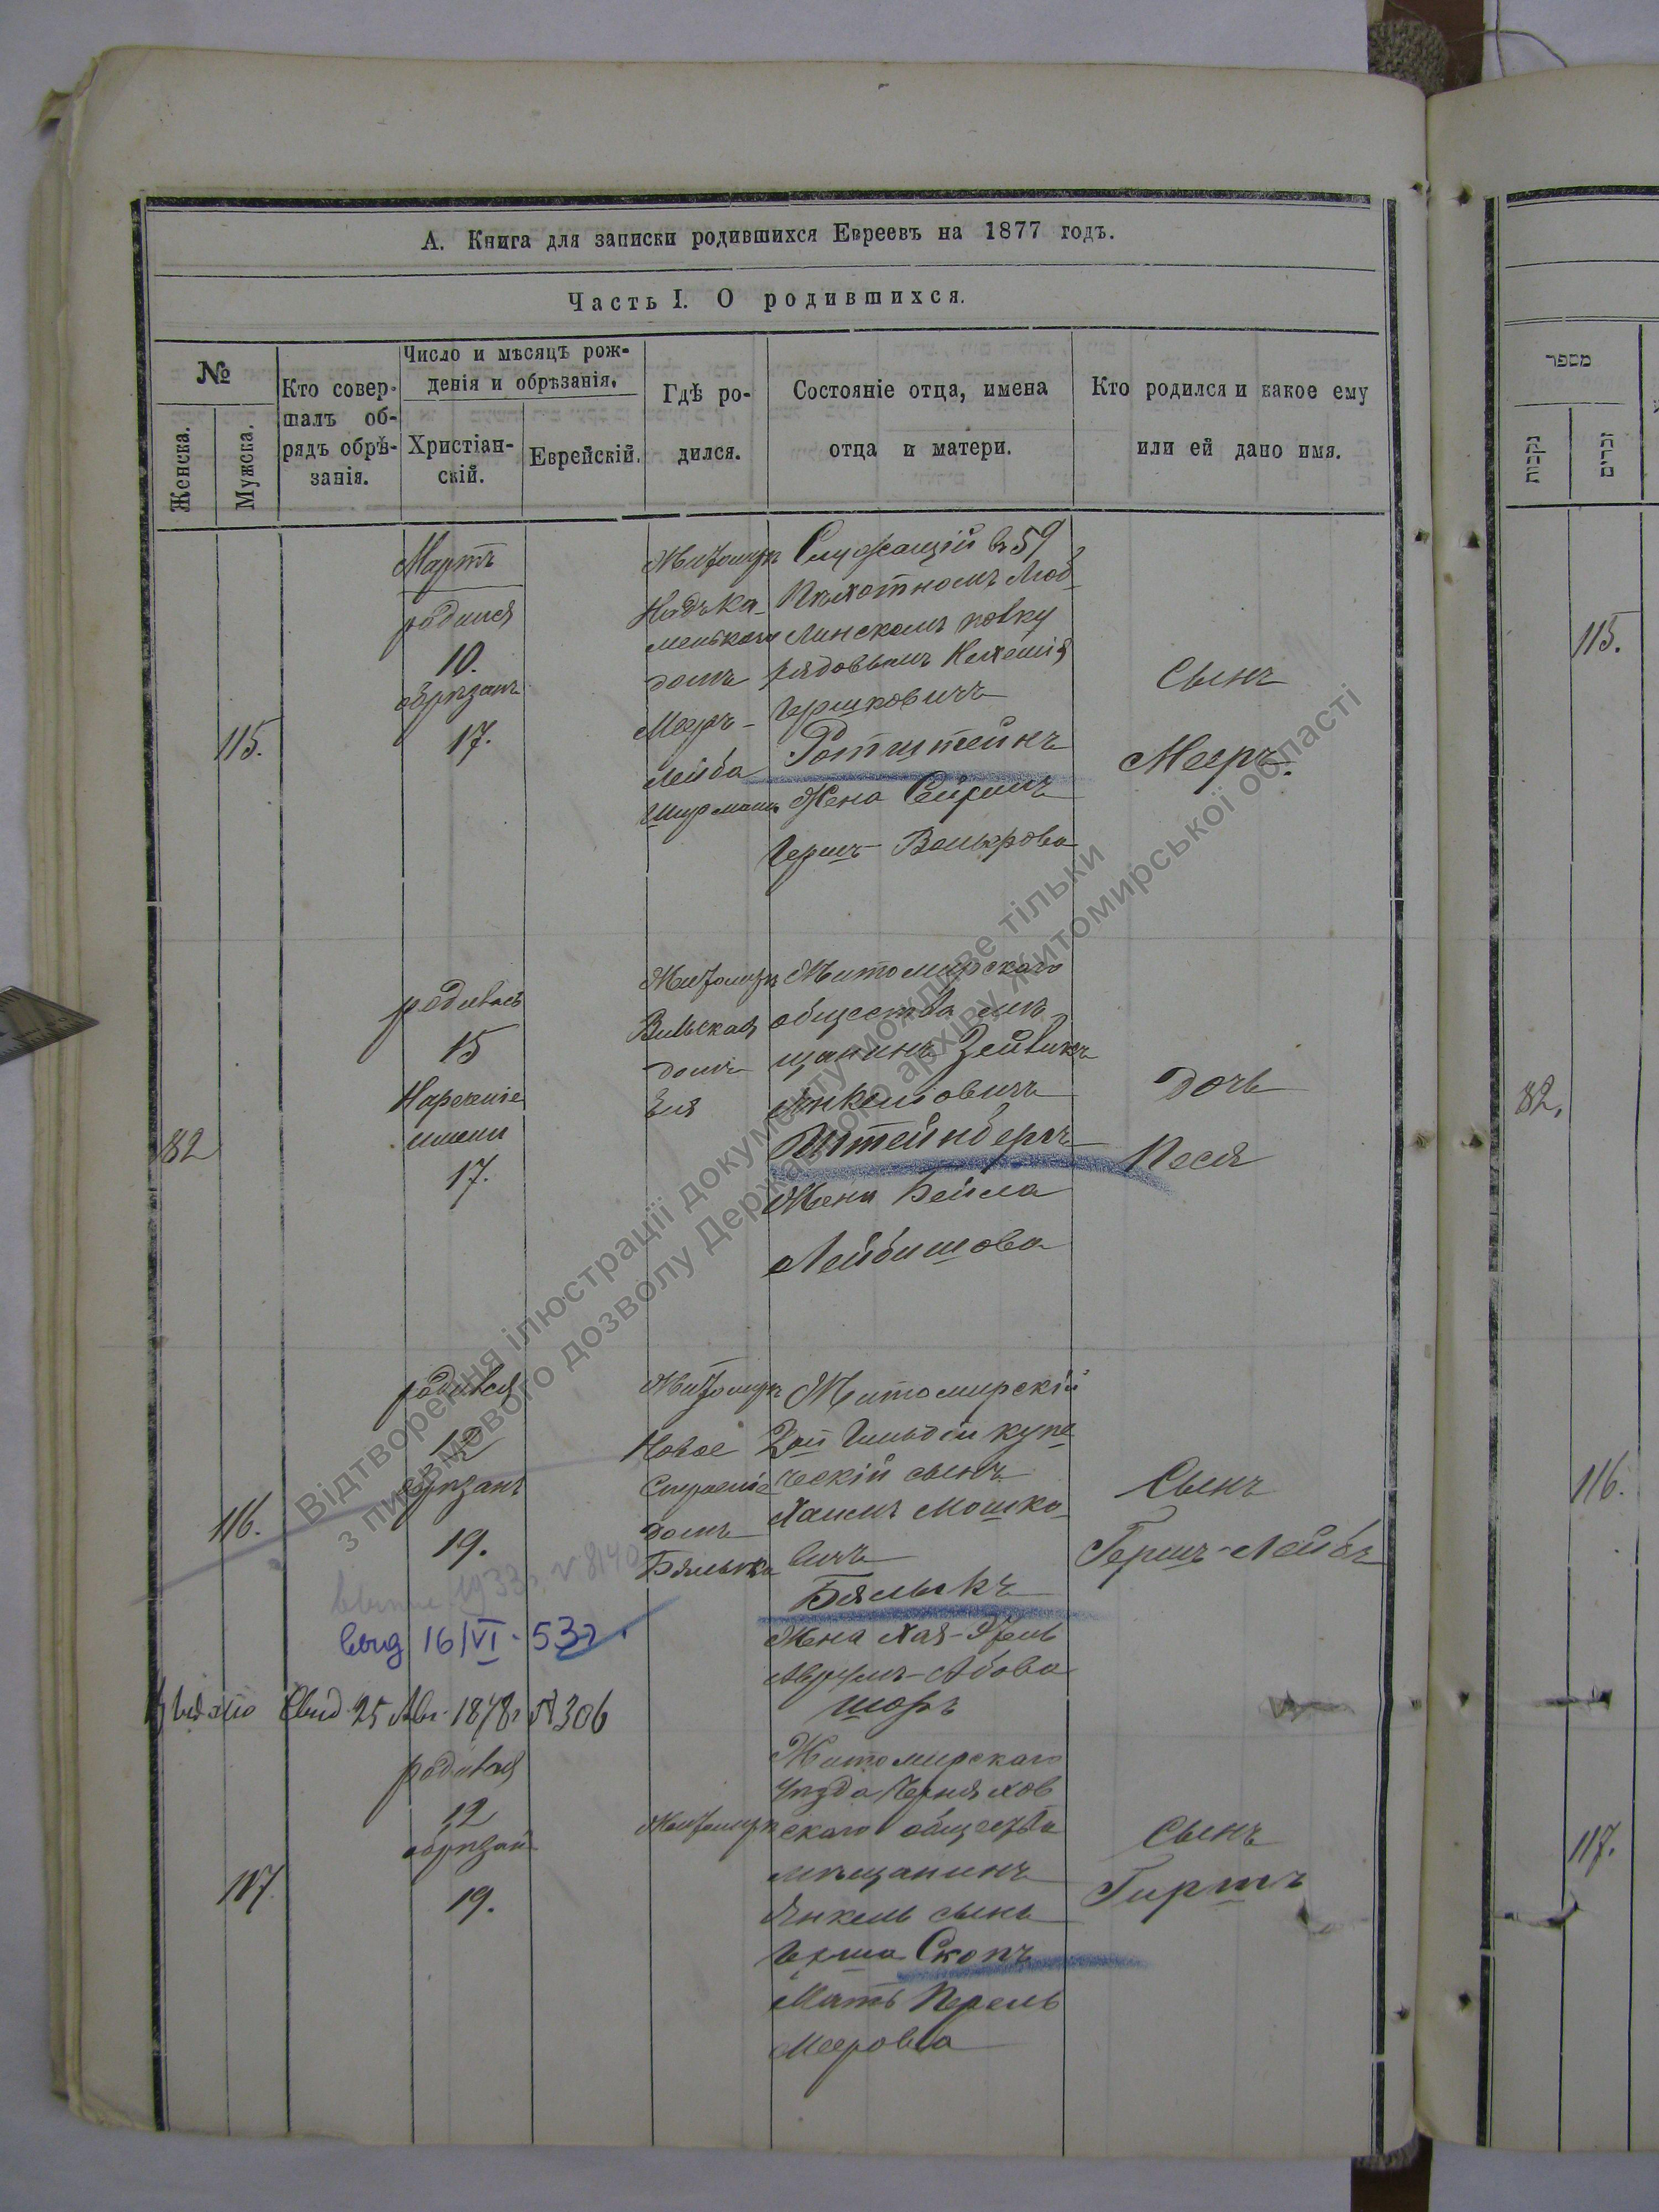 А. Книга для записки родившихся Евреевъ на 1877 годъ.
Часть I. О родившихся.
№
Женска.
Мужска.
Кто совер-
шалъ об-
рядъ обрѣ-
занія.
Число и мѣсяцъ рож-
денія и обрѣзанія.
Христіан-
скій.
Еврейскій.
Гдѣ ро-
дился.
Состояніе отца, имена
отца и матери.
Кто родился и какое ему
или ей дано имя.
115.
Мартъ
родился
10.
обрѣзанъ
17.
Житомиръ
домъ
Мееръ-
Лейба
Служащій въ 59
Пѣхотномъ Люб-
линскомъ полку
рядовымъ
Гершковичъ
Ротштейнъ
Жена
Гершъ-
Сынъ
Мееръ.
82
родилась
15
Нареченіе
имени
17.
Житомиръ
Вильская
домъ
Житомирскаго
общества мѣ-
щанинъ
Янкелiовичъ
Штейнбергъ
Жена Бейла
Лейбишова
Дочь
Песя
116.
родился
12
обрѣзанъ
19.
Житомиръ
Новое
Строеніе
домъ
Бялыка
Житомирскій
2ой Гильдіи купе-
ческій сынъ
Хаимъ Мошко-
вичъ
Бялыкъ
Жена Хая-
Аврумъ-Абова
шоръ
Сынъ
Гершъ-Лейбъ
выд 16/VI-53г.
Выдано Свид 25 Авг. 1878г №306
117.
родился
12
обрѣзан
19.
Житомиръ
Житомирскаго
уѣзда Чернихов
скаго общества
мѣщанинъ
Янкель сынъ
Герша Скопъ
Мать Перель
Меерова
Сынъ
מספר
נקבות
זכרים
115.
82.
116.
117.
Відтворення ілюстрації документу можливе тільки
з письмового дозволу Державного архіву Житомирської області